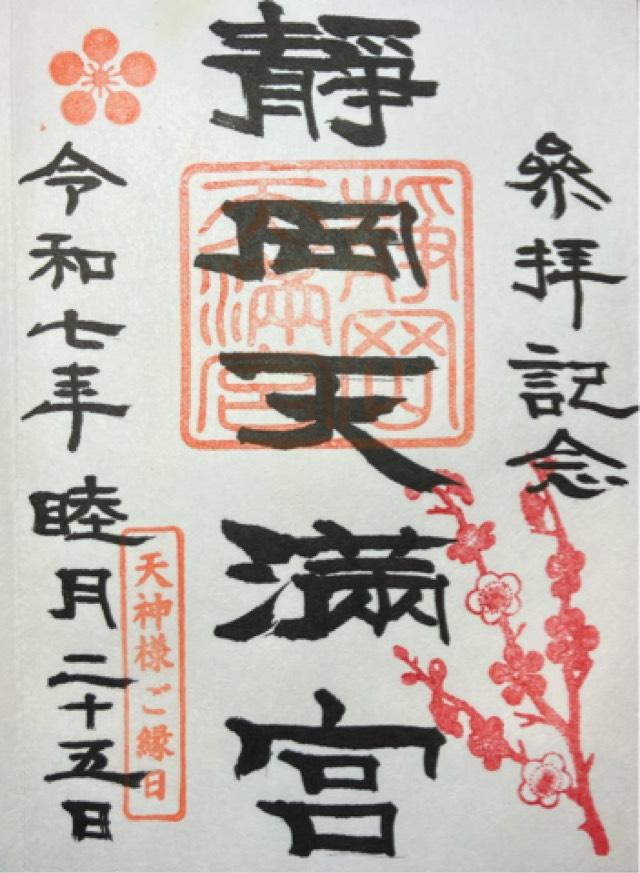 參拝記念
靜岡天満宮
靜岡天満宮
天神様ご縁日
令和七年 睦月二十五日